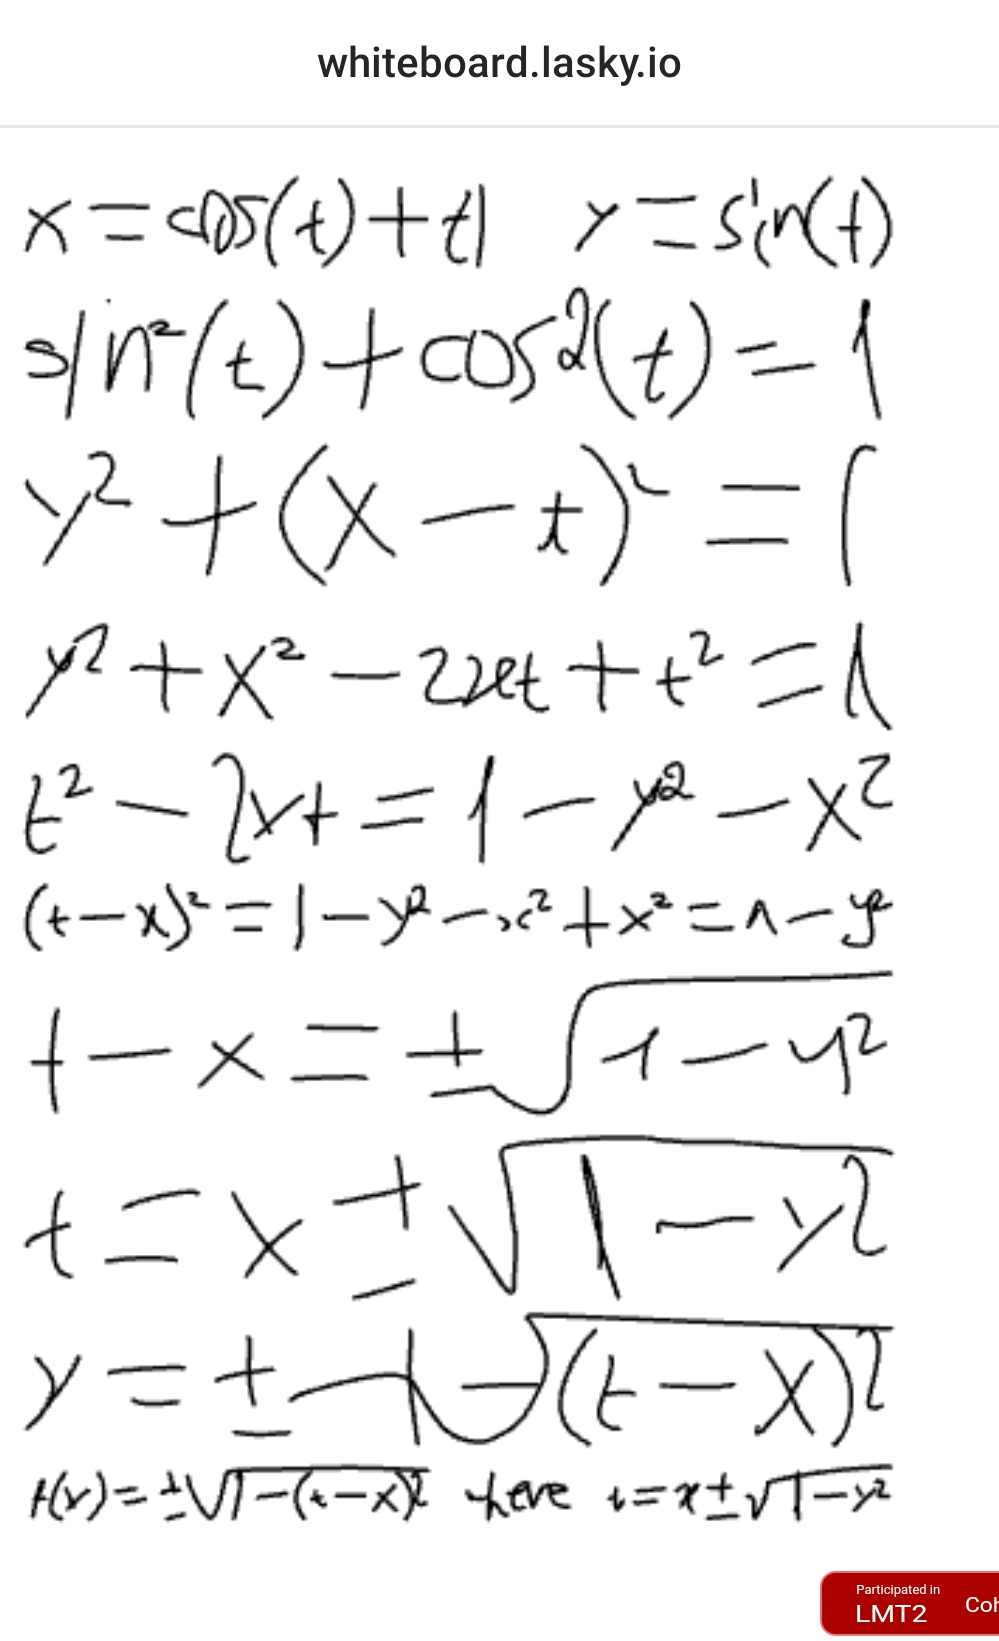 whiteboard.lasky.io
x = cos(t) + t| y = sin(t)
sin²(t) + cos²(t) = 1
y² + (x - t)² = 1
y² + x² - 2xt + t² = 1
t² - 2xt = 1 - y² - x²
(t - x)² = 1 - y² - x² + x² = 1 - y²
t - x = ±√1 - y²
t = x ± √1 - y²
y = ± √(t - x)²
f(x) = ±√1 - (t - x)² where t = x ± √1 - y²
Participated in
LMT2 Coh